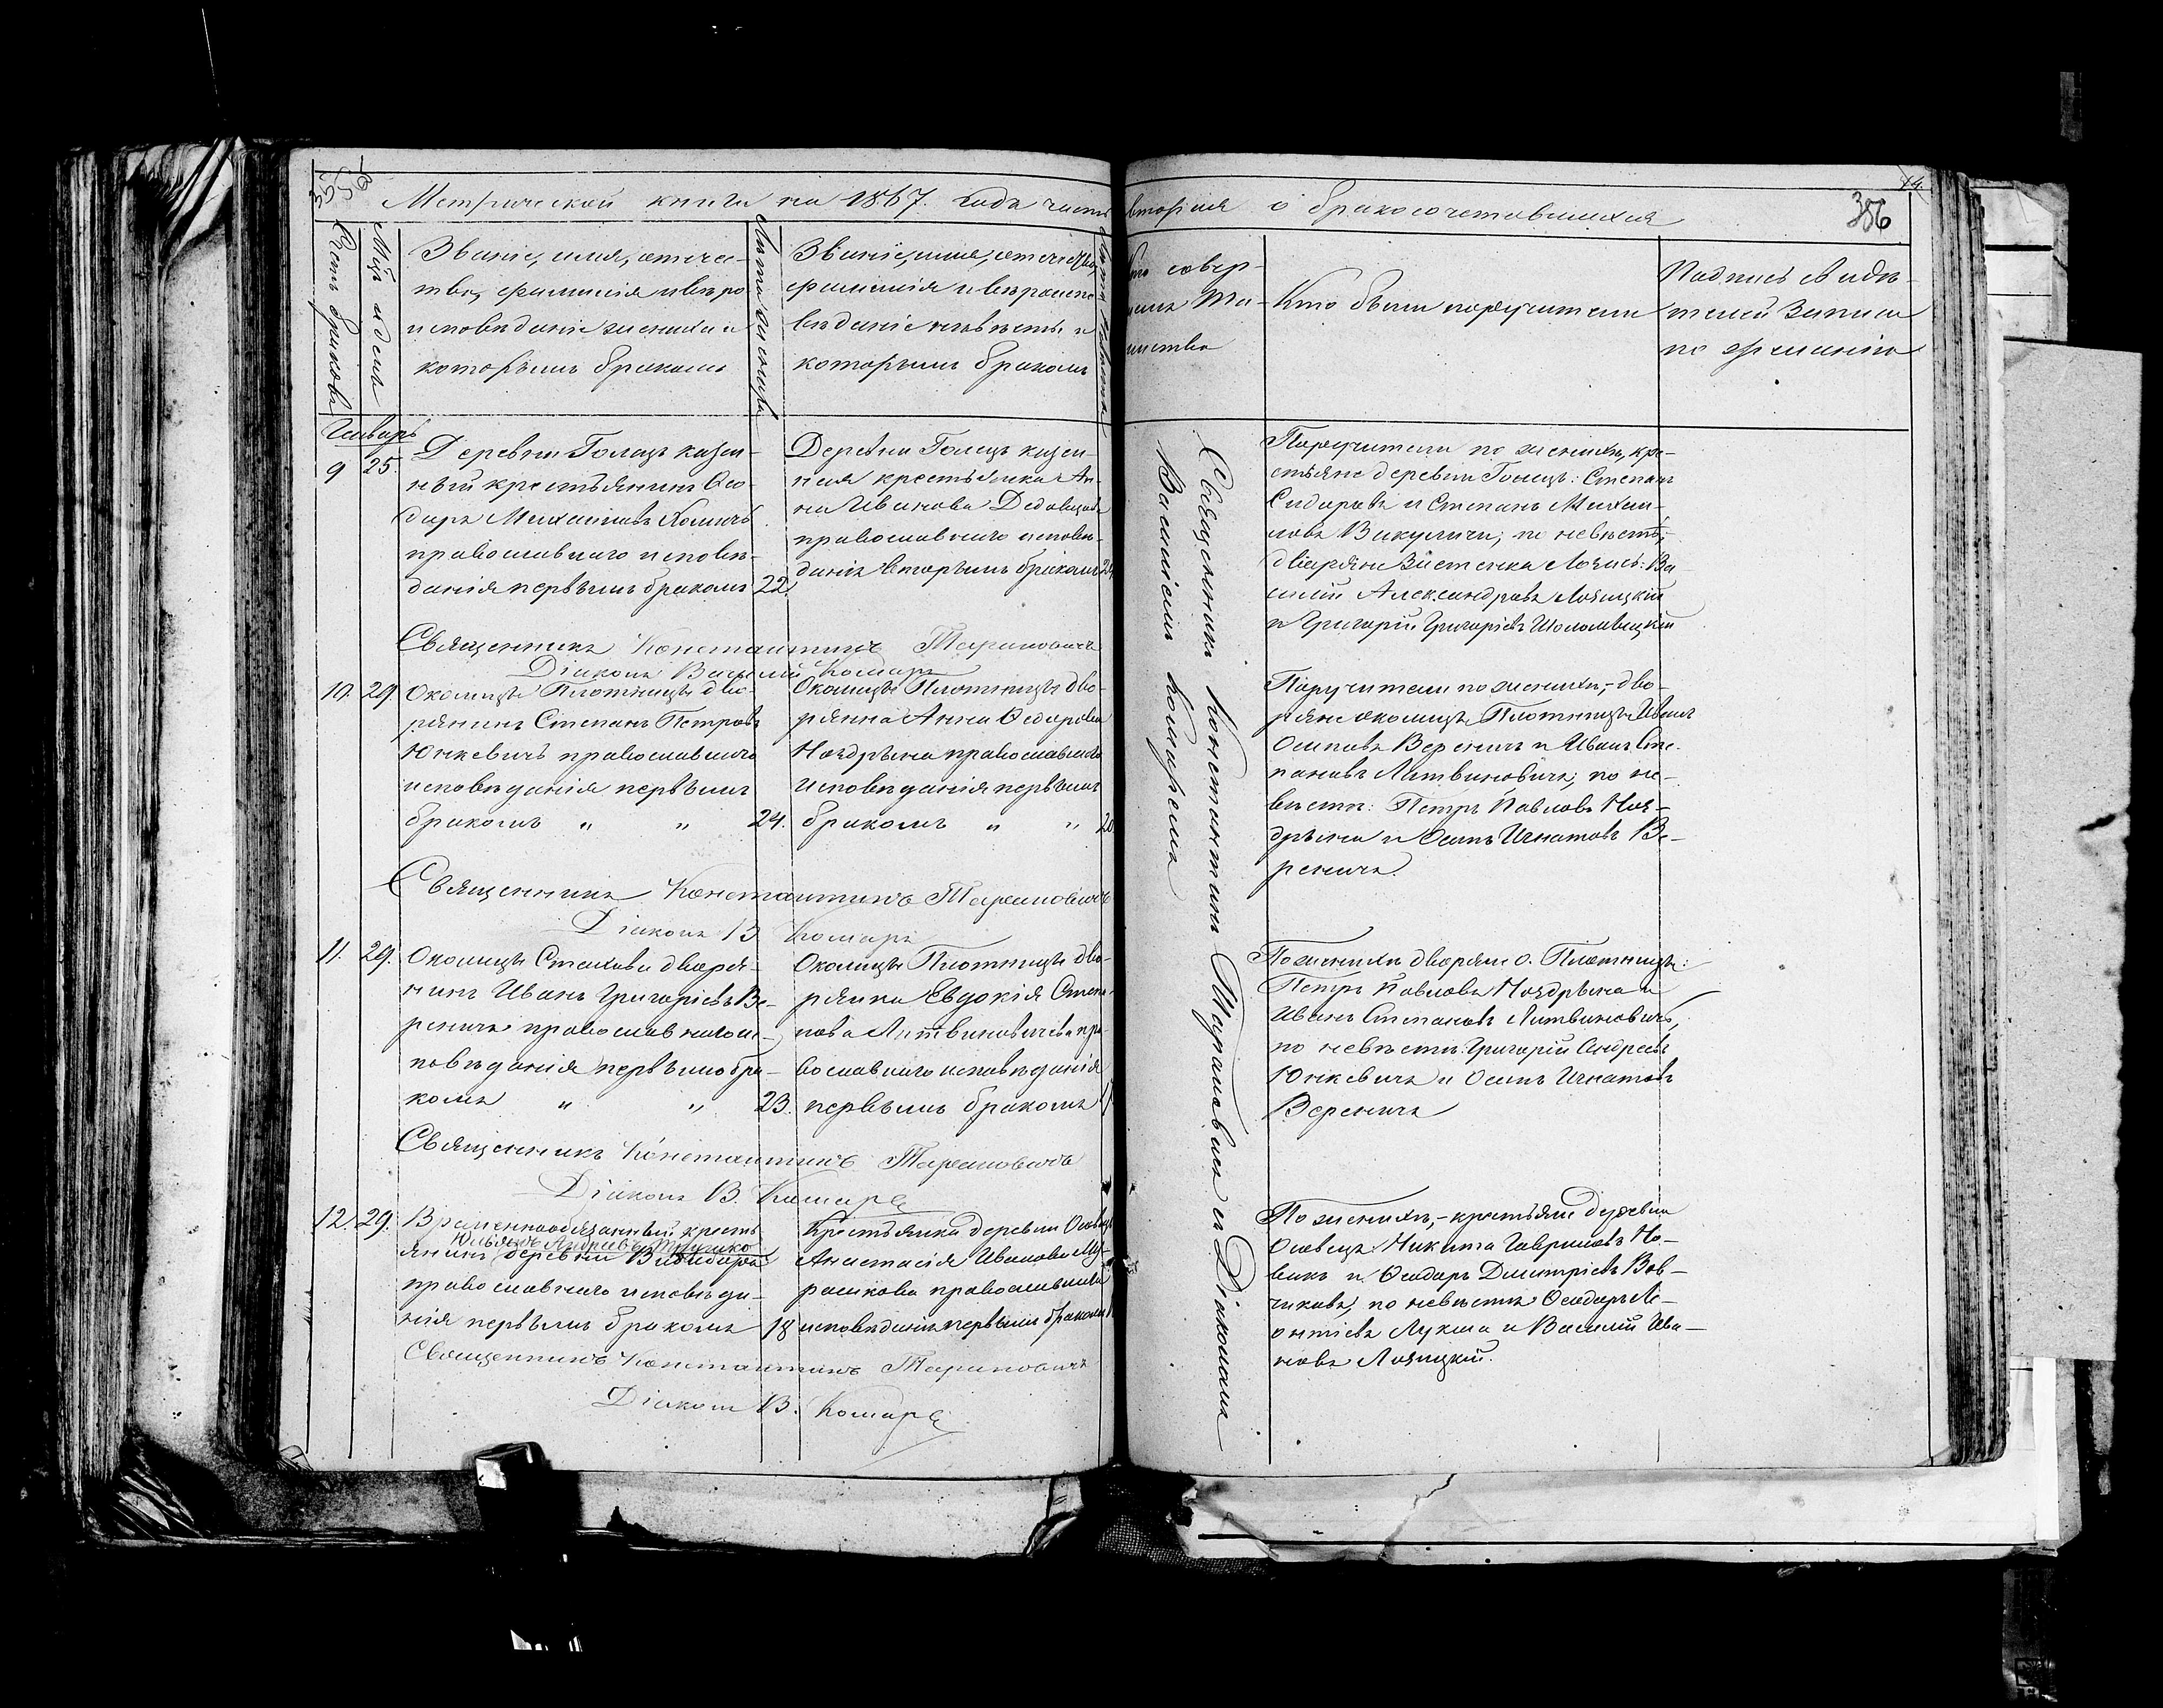 Метрической книги на 1867. года часть вторая о бракосочетавшихся
356
Счетъ браковъ
Мцъ и день
Званіе, имя, отече-
тво, фамилія и вѣро
исповѣданіе жениха и
которымъ бракомъ
Лѣта жениха
Званіе, имя, отечество
фамилія и вѣроиспо
вѣданіе невѣсты и
которымъ бракомъ
Лѣта невѣсты
Кто совер-
шилъ Та-
инство
Кто были поручители
Подпись свидѣ-
телей записи
по желанію
Январь
9 25.
Деревни Голецъ казен-
ный крестьянинъ Ѳео-
доръ Михаиловъ
православнаго исповѣ-
данія первымъ бракомъ 22.
Деревни Голецъ казен-
ная крестьянка Ан-
на Иванова
православнаго исповѣ-
данія вторымъ бракомъ
Поручители по женихѣ, кре-
стьяне деревни Голецъ: Степанъ
Сидоровъ и Степанъ Михаи-
ловъ Викуличи; по невѣстѣ,
дворяне
Александровъ
и Григорій Григорьевъ
Священникъ Константинъ Тарановичъ
Діаконъ Василій Комаръ
10. 29.
Околицы Плотницы дво-
рянинъ Степанъ Петровъ
Юнкевичъ православнаго
исповѣданія первымъ
бракомъ " " 24.
Околицы Плотницы дво-
рянка Анна Ѳедорова
Ноздрына православнаго
исповѣданія первымъ
бракомъ " " 20
Поручители по женихѣ,- дво-
ряне околицы Плотницы Иванъ
Осиповъ Вереничъ и Иванъ Сте-
пановъ Литвиновичъ; по не-
вѣстѣ: Петръ Павловъ Ноз-
дрына и Осипъ Игнатовъ Ве-
реничъ.
Священникъ Константинъ Тарановичъ
Діаконъ В. Комаръ
11. 29.
Околицы Стахова дворя-
нинъ Иванъ Григорьевъ Ве-
реничъ православнаго ис-
повѣданія первымъ бра-
комъ " " 23.
Околицы Плотницы дво-
рянка Евдокія Степа-
нова Литвиновичева пра-
вославнаго исповѣданія
первымъ бракомъ
По женихѣ дворяне о. Плотницы:
Петръ Павловъ Ноздрына и
Иванъ Степановъ Литвиновичъ,
по невѣстѣ: Григорій Андреевъ
Юнкевичъ и Осипъ Игнатовъ
Вереничъ
Священникъ Константинъ Тарановичъ
Діаконъ В. Комаръ
12. 29.
Временнообязанный кресть
Андреевъ
янинъ деревни
православнаго исповѣда-
нія первымъ бракомъ 18
Крестьянка деревни Осовцы
Анастасія Иванова
православнаго
исповѣданія первымъ бракомъ
По женихѣ,- крестьяне деревни
Осовцы: Никита Гавриловъ Но-
викъ и Ѳеодоръ Димитріевъ Вов-
чиковъ, по невѣстѣ Ѳеодоръ Ле-
онтіевъ Лукша и Василій Ива-
новъ
Священникъ Константинъ Тарановичъ
Діаконъ В. Комаръ
Священникъ Константинъ Тарановичъ съ Діакономъ
Василіемъ Комаремъ